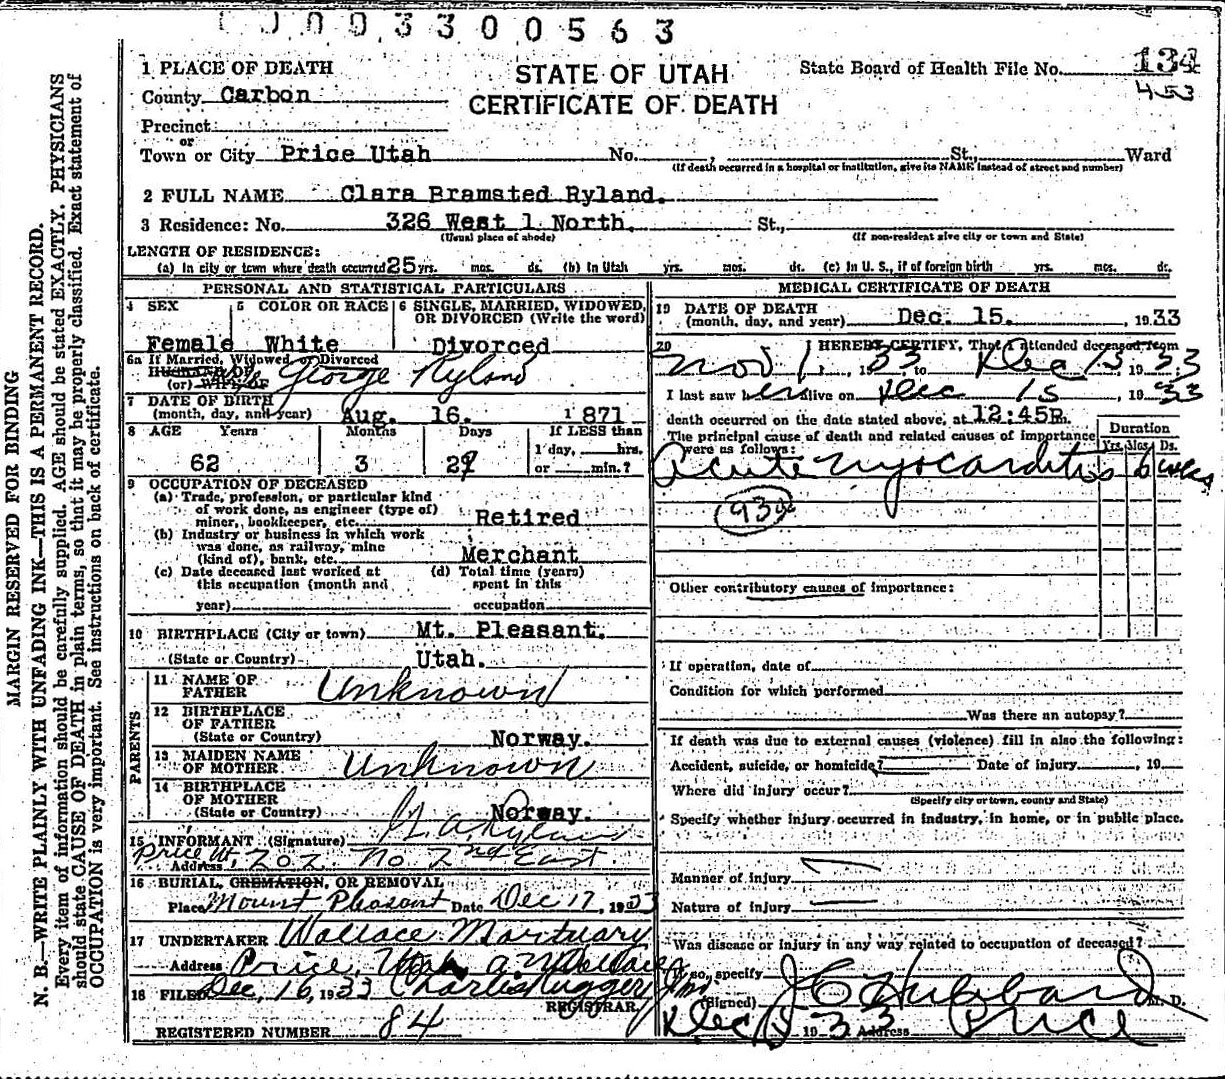 0003300563
1 PLACE OF DEATH
STATE OF UTAH
State Board of Health File No. 134
County Carbon
CERTIFICATE OF DEATH
453
Precinct
or
Town or City Price Utah No. St., Ward
(If death occurred in a hospital or institution, give its NAME instead of street and number)
2 FULL NAME Clara Bramsted Ryland.
3 Residence: No. 326 West 1 North. St.,
(Usual place of abode) (If non-resident give city or town and State)
LENGTH OF RESIDENCE:
(a) In city or town where death occurred 25 yrs. mos. ds. (b) In Utah yrs. mos. ds. (c) In U. S., if of foreign birth yrs. mos. ds.
PERSONAL AND STATISTICAL PARTICULARS
4 SEX 5 COLOR OR RACE 6 SINGLE, MARRIED, WIDOWED, OR DIVORCED (Write the word)
Female White Divorced
6a If Married, Widowed or Divorced
HUSBAND OF
(or) WIFE OF George Ryland
7 DATE OF BIRTH
(month, day, and year) Aug. 16. 1871
8 AGE Years Months Days If LESS than
62 3 29 1 day, hrs.
or min.?
9 OCCUPATION OF DECEASED
(a) Trade, profession, or particular kind
of work done, as engineer (type of)
miner, bookkeeper, etc. Retired
(b) Industry or business in which work
was done, as railway, mine
(kind of), bank, etc. Merchant
(c) Date deceased last worked at
this occupation (month and
year)
(d) Total time (years)
spent in this
occupation
10 BIRTHPLACE (City or town) Mt. Pleasant.
(State or Country) Utah.
PARENTS
11 NAME OF
FATHER Unknown
12 BIRTHPLACE
OF FATHER
(State or Country) Norway.
13 MAIDEN NAME
OF MOTHER Unknown
14 BIRTHPLACE
OF MOTHER
(State or Country) Norway.
15 INFORMANT (Signature) Ryland
Address Price Ut, 202 No 2nd East.
16 BURIAL, CREMATION, OR REMOVAL
Place Mount Pleasant Date Dec 17, 1933
17 UNDERTAKER Wallace Mortuary
Address Price, Utah A. Wallace
18 FILED Dec, 16, 1933
REGISTRAR
REGISTERED NUMBER 84
MEDICAL CERTIFICATE OF DEATH
19 DATE OF DEATH
(month, day, and year) Dec. 15. 1933
20 I HEREBY CERTIFY, That I attended deceased from
Nov 1, 1933 to Dec 15 1933
I last saw her alive on Dec 15, 1933
death occurred on the date stated above, at 12:45P.m.
The principal cause of death and related causes of importance
were as follows:
Duration
Yrs. Mos. Ds.
Acute Myocarditis 6 weeks
93a
Other contributory causes of importance:
If operation, date of
Condition for which performed
Was there an autopsy?
If death was due to external causes (violence) fill in also the following:
Accident, suicide, or homicide? Date of injury , 19
Where did injury occur?
(Specify city or town, county and State)
Specify whether injury occurred in industry, in home, or in public place.
Manner of injury
Nature of injury
Was disease or injury in any way related to occupation of deceased?
If so, specify
(Signed) J C Hubbard M. D.
Dec 15 1933 Address Price
MARGIN RESERVED FOR BINDING
N. B.—WRITE PLAINLY WITH UNFADING INK—THIS IS A PERMANENT RECORD.
Every item of information should be carefully supplied. AGE should be stated EXACTLY. PHYSICIANS
should state CAUSE OF DEATH in plain terms, so that it may be properly classified. Exact statement of
OCCUPATION is very important. See instructions on back of certificate.